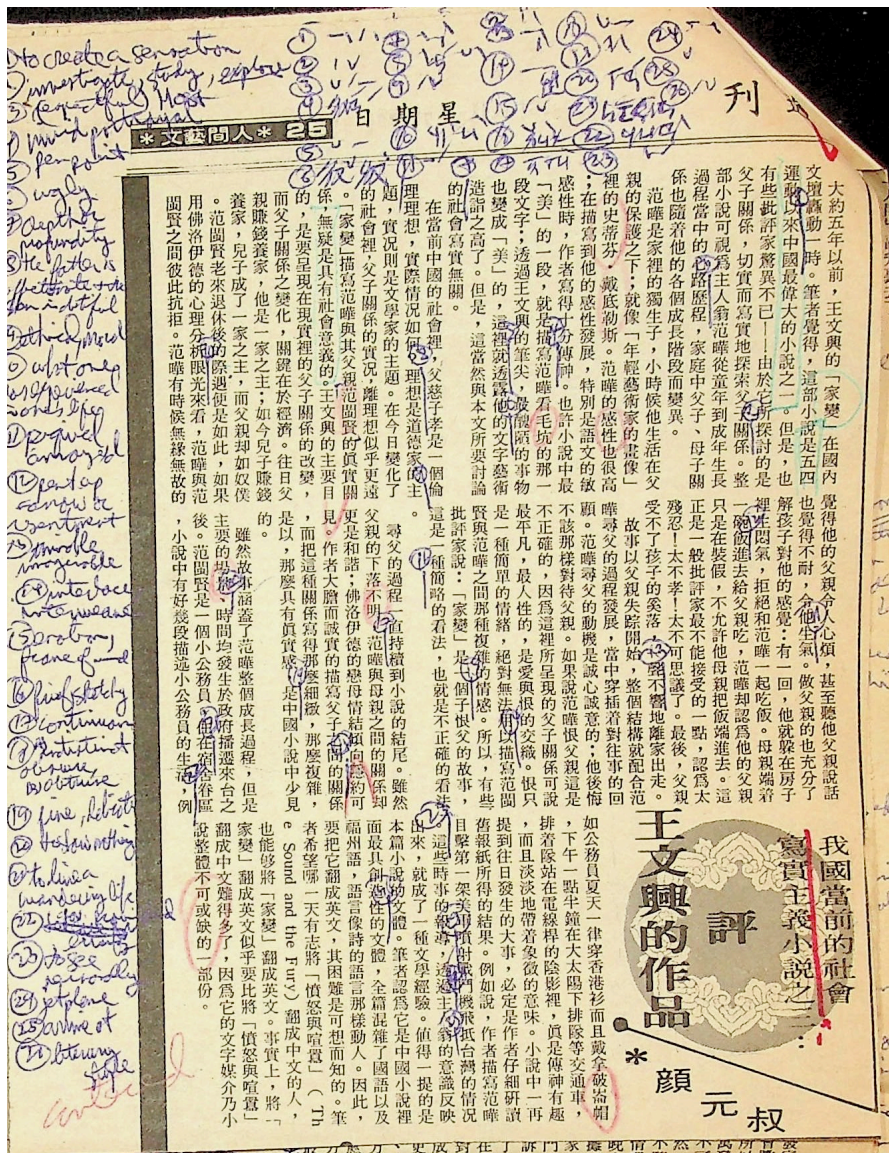 刊
日期星
*文藝間人* 25
我國當前的社會
寫實主義小說之三：
評
王文興的作品
*顏元叔
大約五年以前，王文興的「家變」在國內
文壇轟動一時。筆者覺得，這部小說是五四
運動以來中國最偉大的小說之一。但是，也
有些批評家驚異不已——由於它所探討的是
父子關係，切實而寫實地探索父子關係。整
部小說可視爲主人翁范曄從童年到成年生長
過程當中的心路歷程，家庭中父子、母子關
係也隨着他的各個成長階段而變異。
范曄是家裡的獨生子，小時候他生活在父
親的保護之下；就像「年輕藝術家的畫像」
裡的史蒂芬．戴底勒斯。范曄的感性也很高
；在描寫到他的感性發展，特別是語文的敏
感性時，作者寫得十分傳神。也許小說中最
「美」的一段，就是描寫范曄看毛坑的那一
段文字；透過王文興的筆尖，最醜陋的事物
也變成「美」的，這裡就透露他的文字藝術
造詣之高了。但是，這當然與本文所要討論
的社會寫實無關。
在當前中國的社會裡，父慈子孝是一個倫
理理想，實際情況如何？理想是道德家的主
題，實況則是文學家的主題。在今日變化了
的社會裡，父子關係的實況，離理想似乎更遠
。「家變」描寫范曄與其父親范閩賢的眞實關
係，無疑是具有社會意義的。王文興的主要目
的，是要呈現在現實裡的父子關係的改變，
而父子關係之變化，關鍵在於經濟。往日父
親賺錢養家，他是一家之主；如今兒子賺錢
養家，兒子成了一家之主，而父親却如奴僕
。范閩賢老來退休後的際遇便是如此，如果
用佛洛伊德的心理分析眼光來看，范曄與范
閩賢之間彼此抗拒。范曄有時候無緣無故的
覺得他的父親令人心煩，甚至聽他父親說話
也覺得不耐，令他生氣。做父親的也充分了
解孩子對他的感覺：有一回，他就躱在房子
裡生悶氣，拒絕和范曄一起吃飯。母親端着
一碗飯進去給父親吃，范曄却認爲他的父親
只是在裝假，不允許他母親把飯端進去。這
正是一般批評家最不能接受的一點，認爲太
殘忍！太不孝！太不可思議了。最後，父親
受不了孩子的奚落，一聲不響地離家出走。
故事以父親失踪開始，整個結構就配合范
曄尋父的過程發展，當中穿插着對往事的回
顧。范曄尋父的動機是誠心誠意的；他後悔
不該那樣對待父親。如果說范曄恨父親這是
不正確的，因爲這裡所呈現的父子關係可說
最平凡，最人性的，是愛與恨的交織。恨只
是一種簡單的情緒，絕對無法用以描寫范閩
賢與范曄之間那種複雜的情感。所以，有些
批評家說：「家變」是一個子恨父的故事，
這是一種簡略的看法，也就是不正確的看法
。
尋父的過程一直持續到小說的結尾。雖然
父親的下落不明，范曄與母親之間的關係却
更是和諧；佛洛伊德的戀母情結傾向隱約可
見。作者大膽而誠實的描寫父子之間的關係
，而把這種關係寫得那麼細緻，那麼複雜，
是以，那麼具有眞實感，是中國小說中少見
的。
雖然故事涵蓋了范曄整個成長過程，但是
主要的場所、時間均發生於政府播遷來台之
後。范閩賢是一個小公務員，他在宿舍眷區
，小說中有好幾段描述小公務員的生活，例
如公務員夏天一律穿香港衫而且戴拿破崙帽
，下午一點半鐘在大太陽下排隊等交通車，
排着隊站在電線桿的陰影裡，眞是傳神有趣
，而且淡淡地帶着象徵的意味。小說中一再
提到往日發生的大事，必定是作者仔細硏讀
舊報紙所得的結果。例如說，作者描寫范曄
目擊第一架美軍噴射戰鬥機飛抵台灣的情況
，這些時事的報導，透過主人翁的意識反映
出來，就成了一種文學經驗。値得一提的是
本篇小說的文體。筆者認爲它是中國小說裡
面最具創造性的文體，全篇混雜了國語以及
福州語，語言像詩的語言那樣動人。因此，
要把它翻成英文，其困難是可想而知的。筆
者希望哪一天有志將「憤怒與喧囂」（Th
e Sound and the Fury）翻成中文的人，
也能够將「家變」翻成英文。事實上，將「
家變」翻成英文似乎要比將「憤怒與喧囂」
翻成中文難得多了，因爲它的文字媒介乃小
說整體不可或缺的一部份。
① to create a sensation
② investigate, study, explore
④ vivid portrayal
⑤ pen point
⑥ ugly
⑦ depth or profundity
⑧ the father is
⑭ interlace interweave
⑯ brief sketchy
⑰ continuous
⑱ indistinct obscure, obtuse
⑲ fine, delicate
㉑ to live a wandering life
㉓ to see
㉔ jet plane
㉕ arrive at
㉖ literary style